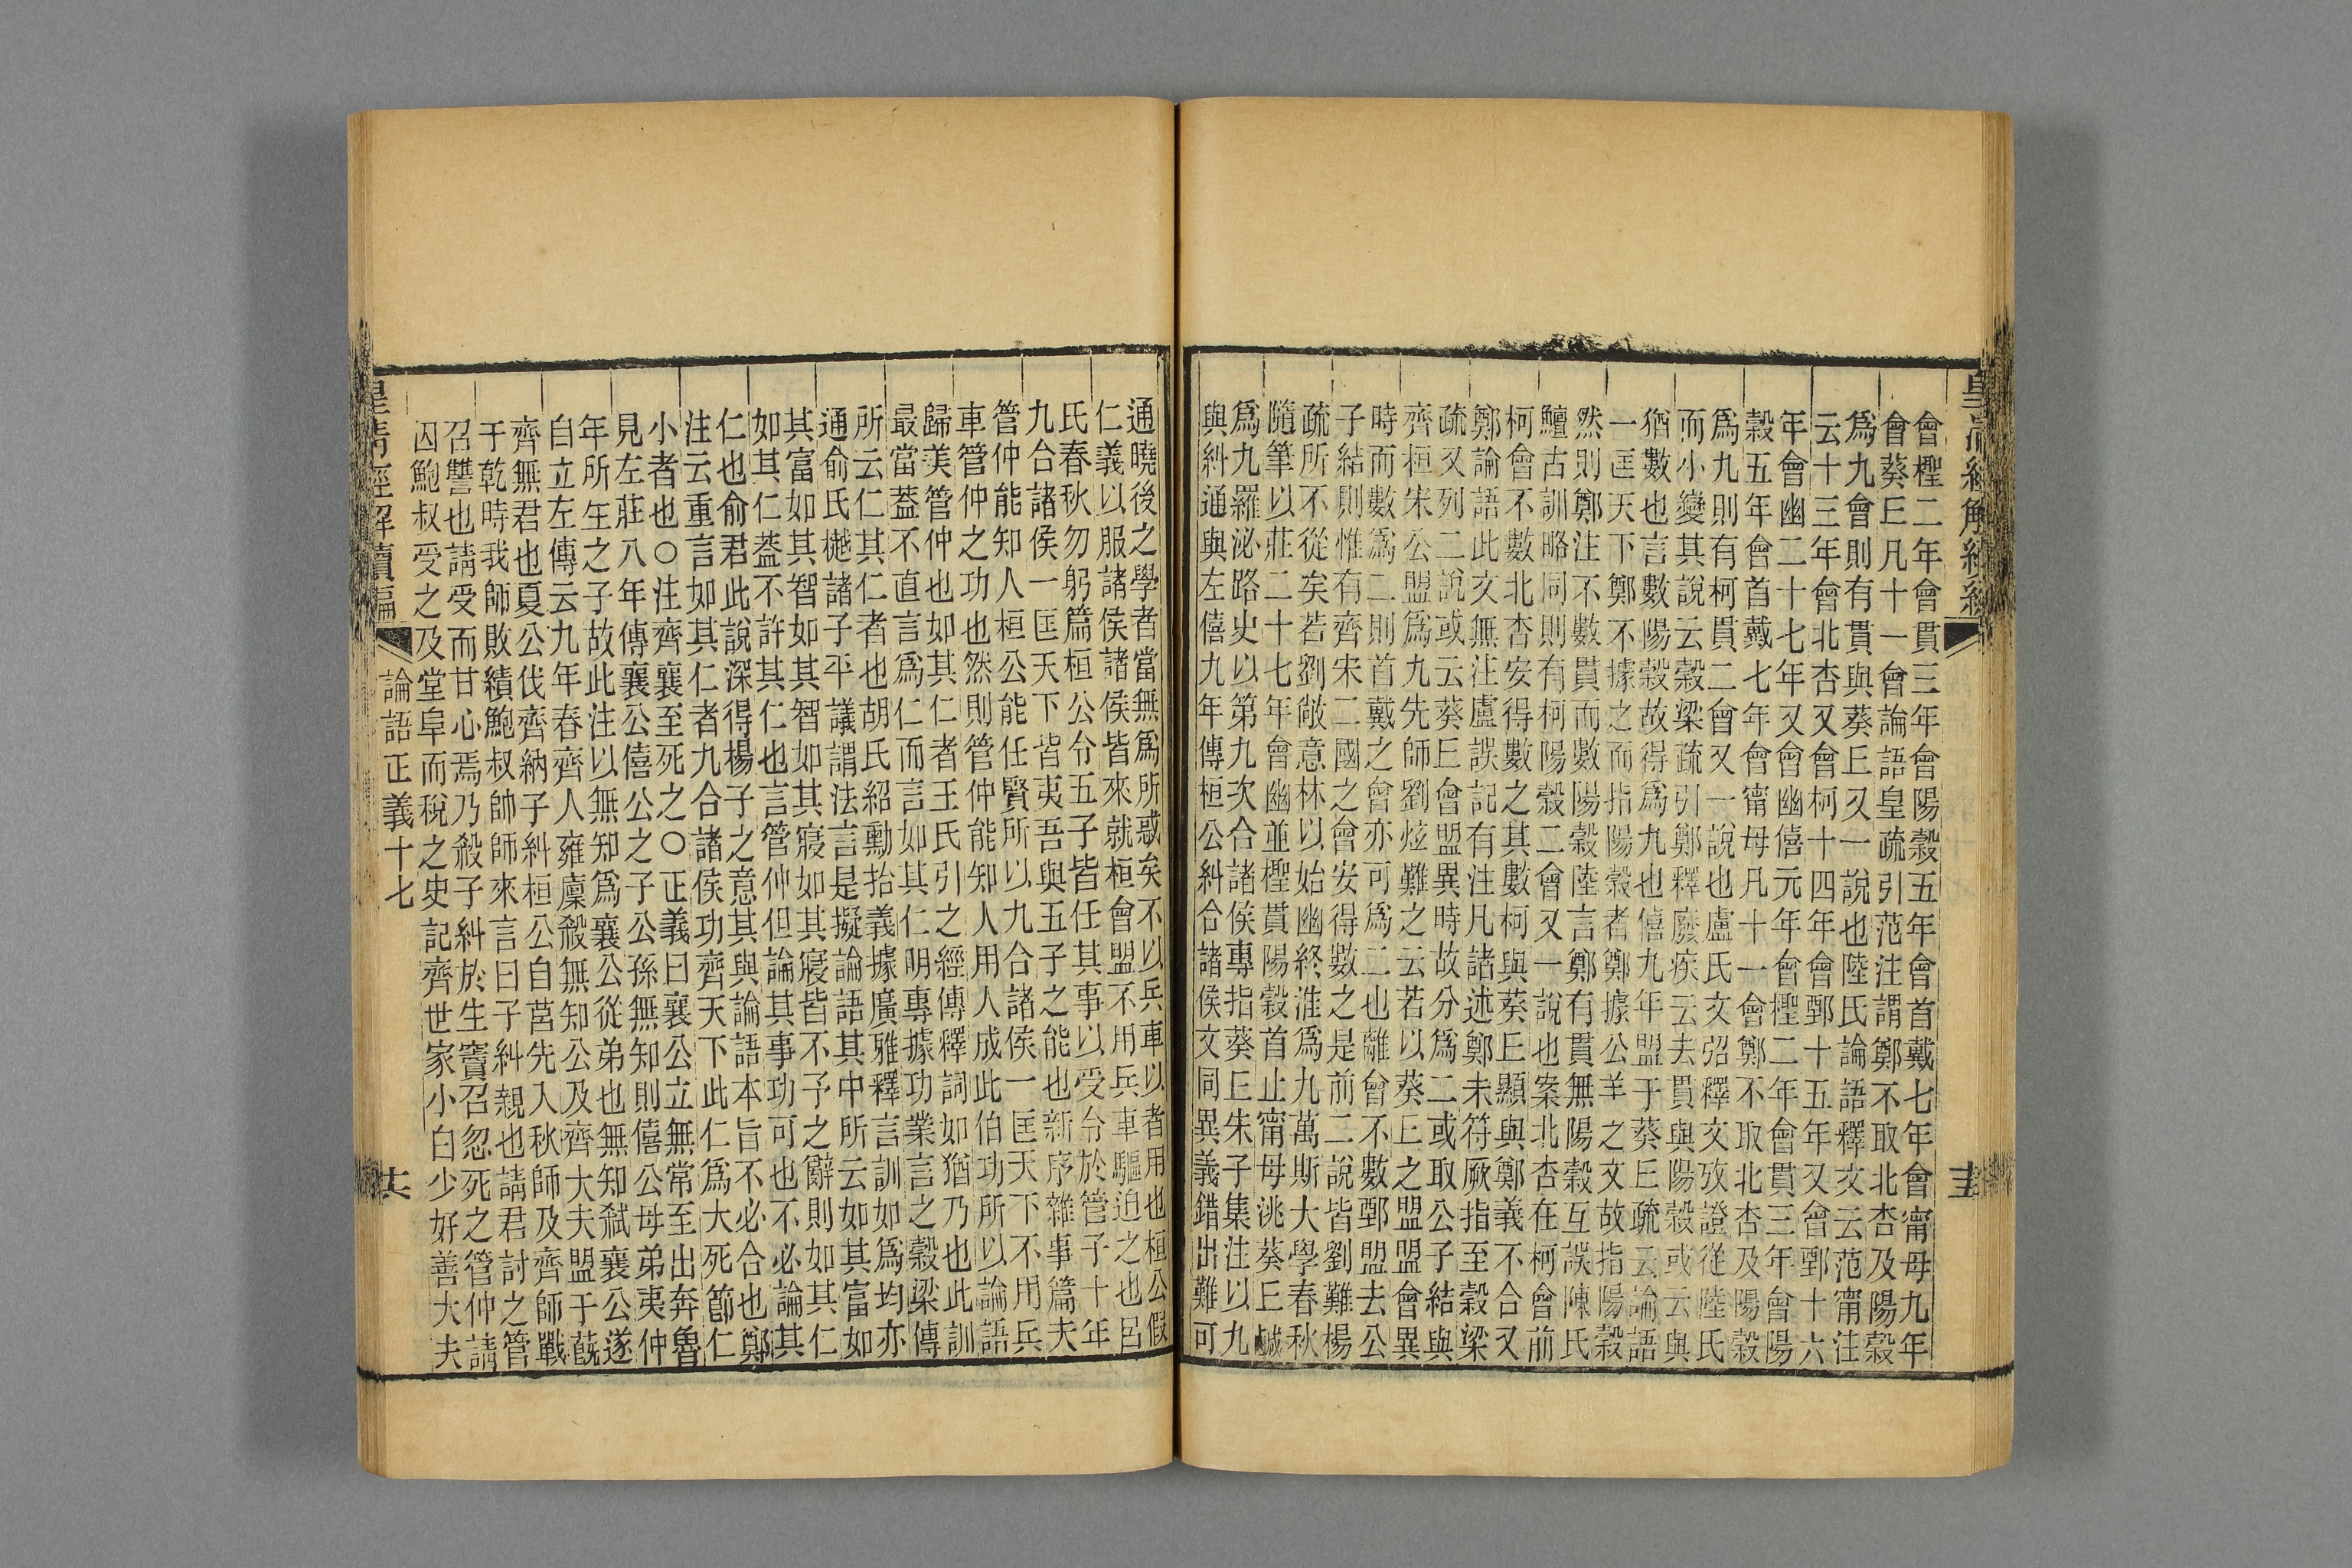 會檉二年會貫三年會陽穀五年會首戴七年會甯母九年
會葵丘凡十一會論語皇疏引范注謂鄭不取北杏及陽穀
爲九會則有貫與葵丘又一說也陸氏論語釋文云范甯注
云十三年會北杏又會柯十四年會鄄十五年又會鄄十六
年會幽二十七年又會幽僖元年會檉二年會貫三年會陽
穀五年會首戴七年會甯母凡十一會鄭不取北杏及陽穀
爲九則有柯貫二會又一說也盧氏文弨釋文攷證從陸氏
而小變其說云穀梁疏引鄭釋廢疾云去貫與陽穀或云與
猶數也言數陽穀故得爲九也僖九年盟于葵丘疏云論語
一匡天下鄭不據之而指陽穀者鄭據公羊之文故指陽穀
然則鄭注不數貫而數陽穀陸言鄭有貫無陽穀互誤陳氏
鱣古訓略同則有柯陽穀二會又一說也案北杏在柯會前
柯會不數北杏安得數之其數柯與葵丘顯與鄭義不合又
鄭論語此文無注盧誤記有注凡諸述鄭未符厥指至穀梁
疏又列二說或云葵丘會盟異時故分爲二或取公子結與
齊桓宋公盟爲九先師劉炫難之云若以葵丘之盟盟會異
時而數爲二則首戴之會亦可爲二也離會不數鄄盟去公
子結則惟有齊宋二國之會安得數之是前二說皆劉難楊
疏所不從矣若劉敞意林以始幽終淮爲九萬斯大學春秋
隨筆以莊二十七年會幽並檉貫陽穀首止甯母洮葵丘鹹
爲九羅泌路史以第九次合諸侯專指葵丘朱子集注以九
與糾通與左僖九年傳桓公糾合諸侯文同異義錯出難可
皇淸經解續編
通曉後之學者當無爲所惑矣不以兵車以者用也桓公假
仁義以服諸侯諸侯皆來就桓會盟不用兵車驅迫之也呂
氏春秋勿躬篇桓公令五子皆任其事以受令於管子十年
九合諸侯一匡天下皆夷吾與五子之能也新序雜事篇夫
管仲能知人桓公能任賢所以九合諸侯一匡天下不用兵
車管仲之功也然則管仲能知人用人成此伯功所以論語
歸美管仲也如其仁者王氏引之經傳釋詞如猶乃也此訓
最當葢不直言爲仁而言如其仁明專據功業言之穀梁傳
所云仁其仁者也胡氏紹勳拾義據廣雅釋言訓如爲均亦
通俞氏樾諸子平議謂法言是擬論語其中所云如其富如
其富如其智如其智如其寢如其寢皆不予之辭則如其仁
如其仁葢不許其仁也言管仲但論其事功可也不必論其
仁也俞君此說深得楊子之意其與論語本旨不必合也鄭
注云重言如其仁者九合諸侯功齊天下此仁爲大死節仁
小者也○注齊襄至死之○正義曰襄公立無常至出奔魯
見左莊八年傳襄公僖公之子公孫無知則僖公母弟夷仲
年所生之子故此注以無知爲襄公從弟也無知弒襄公遂
自立左傳云九年春齊人雍廩殺無知公及齊大夫盟于蔇
齊無君也夏公伐齊納子糾桓公自莒先入秋師及齊師戰
于乾時我師敗績鮑叔帥師來言曰子糾親也請君討之管
召讐也請受而甘心焉乃殺子糾於生竇召忽死之管仲請
囚鮑叔受之及堂阜而稅之史記齊世家小白少好善大夫
皇淸經解續編 論語正義十七 六